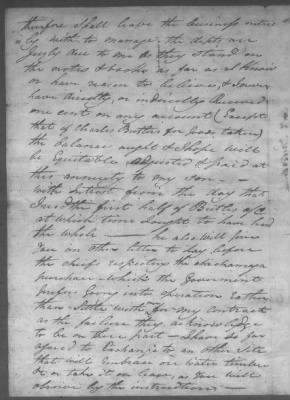 therefore I shall leave the business entire
ly with to manage, the debts are
justly due to me as they stand on
the notes & books as far as I know
or have reason to believe, & I never
have directly, or indirectly Received
one cent on any account (Except
that of Charles Buttles for goods taken)
the balance ought & I hope will
be equitable adjusted & paid at
this annuity to my son —
with Interest from the day that
I the first half of Buttles a/c
at which time I ought to have had
the whole — he also will give
you an other letter to lay before
the chief respecting the chickamaga
purchase which the Government
prefers going into operation rather
than settle with for my contract
as the failure they acknowledge
to be on there part — I have so far
agreed to Exchange to an other site
that will embrace one water timber
& or take it on lease as you will
observe by the instructions